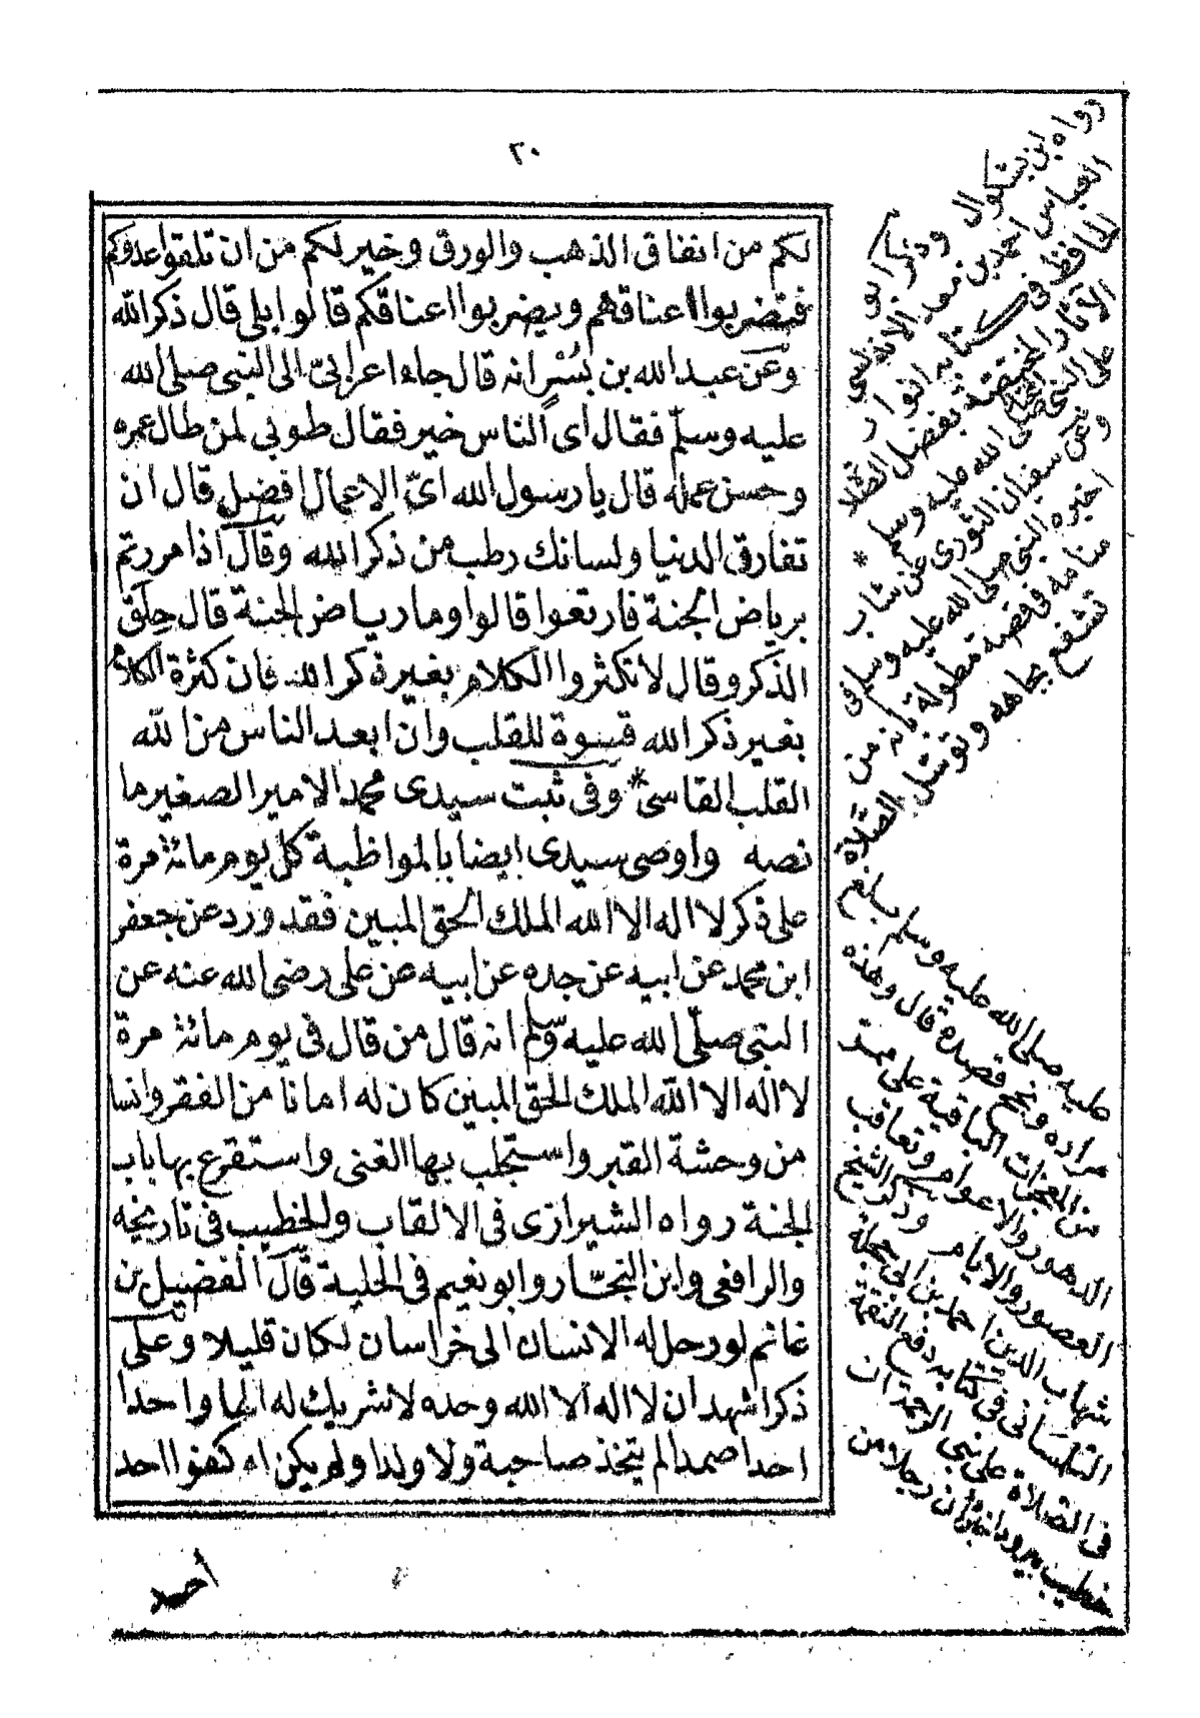 ٣٠
لكم من انفاق الذهب والورق وخير لكم من ان تلقوا عدوكم
فتضربوا اعناقهم ويضربوا اعناقكم قالوا بلى قال ذكر الله
وعن عبد الله بن بُسْرٍ انه قال جاء اعرابىّ الى النبى صلى الله
عليه وسلّم فقال اى الناس خير فقال طوبى لمن طال عمره
وحسن عمله قال يا رسول الله اىّ الاعمال افضل قال ان
تفارق الدنيا ولسانك رطب من ذكر الله وقال اذا مررتم
برياض الجنة فارتعوا قالوا وما رياض الجنة قال حِلَق
الذكر وقال لا تكثروا الكلام بغير ذكر الله فان كثرة الكلام
بغير ذكر الله قسوة للقلب وان ابعد الناس من الله
القلب القاسى * وفى ثبت سيدى محمد الامير الصغير ما
نصه واوصى سيدى ايضا بالمواظبة كل يوم مائة مرة
على ذكر لا اله الا الله الملك الحق المبين فقد ورد عن جعفر
ابن محمد عن ابيه عن جده عن ابيه عن على رضى الله عنه عن
النبى صلّى الله عليه وسلم انه قال من قال فى يوم مائة مرة
لا اله الا الله الملك الحق المبين كان له امانا من الفقر وانسا
من وحشة القبر واستجلب بها الغنى واستقرع بها باب
الجنة رواه الشيرازى فى الالقاب والخطيب فى تاريخه
والرافعى وابن النجّار وابو نعيم فى الحلية قال الفضيل بن
غانم لو رحل له الانسان الى خراسان لكان قليلا وعلى
ذكر اشهد ان لا اله الا الله وحده لا شريك له الها واحدا
احدا صمدا لم يتخذ صاحبة ولا ولدا ولم يكن له كفوا احد
أحد
رواه ابن بشكوال وذكر ابو
العباس احمد بن الاندلسى
الحافظ فى كتابه انوار
الآثار المختصة بفضل الصّلاة
على النبى صلى الله عليه وسلم *
وعن سفيان الثورى عن شاب
اخبره النبى صلى الله عليه وسلم فى
منامه فى قصة مطولة بانه من
تشفع بجاهه وتوسّل بالصّلاة
عليه صلى الله عليه وسلم بلغ
مراده ونجح قصده قال وهذه
من المعجزات الباقية على ممرّ
الدهور والاعوام وتعاقب
العصور والايام وذكر الشيخ
شهاب الدين احمد بن ابى حجلة
التلمسانى فى كتابه دفع النقمة
فى الصّلاة على نبى الرحمة ان
خطيب رجلا من